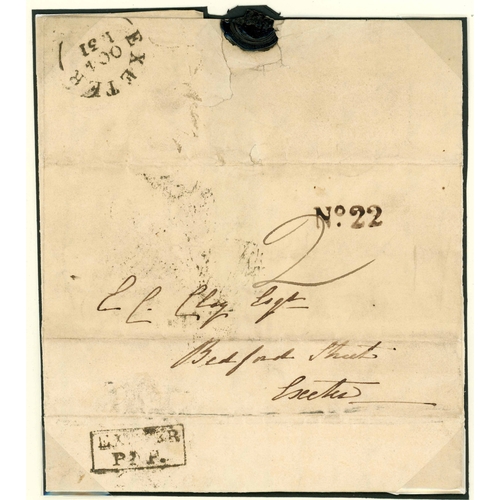 EXETER
OC 1
1831
No. 22
2
E C. Clay. Esqr
Bedford Street
Exeter
EXETER
P.P.